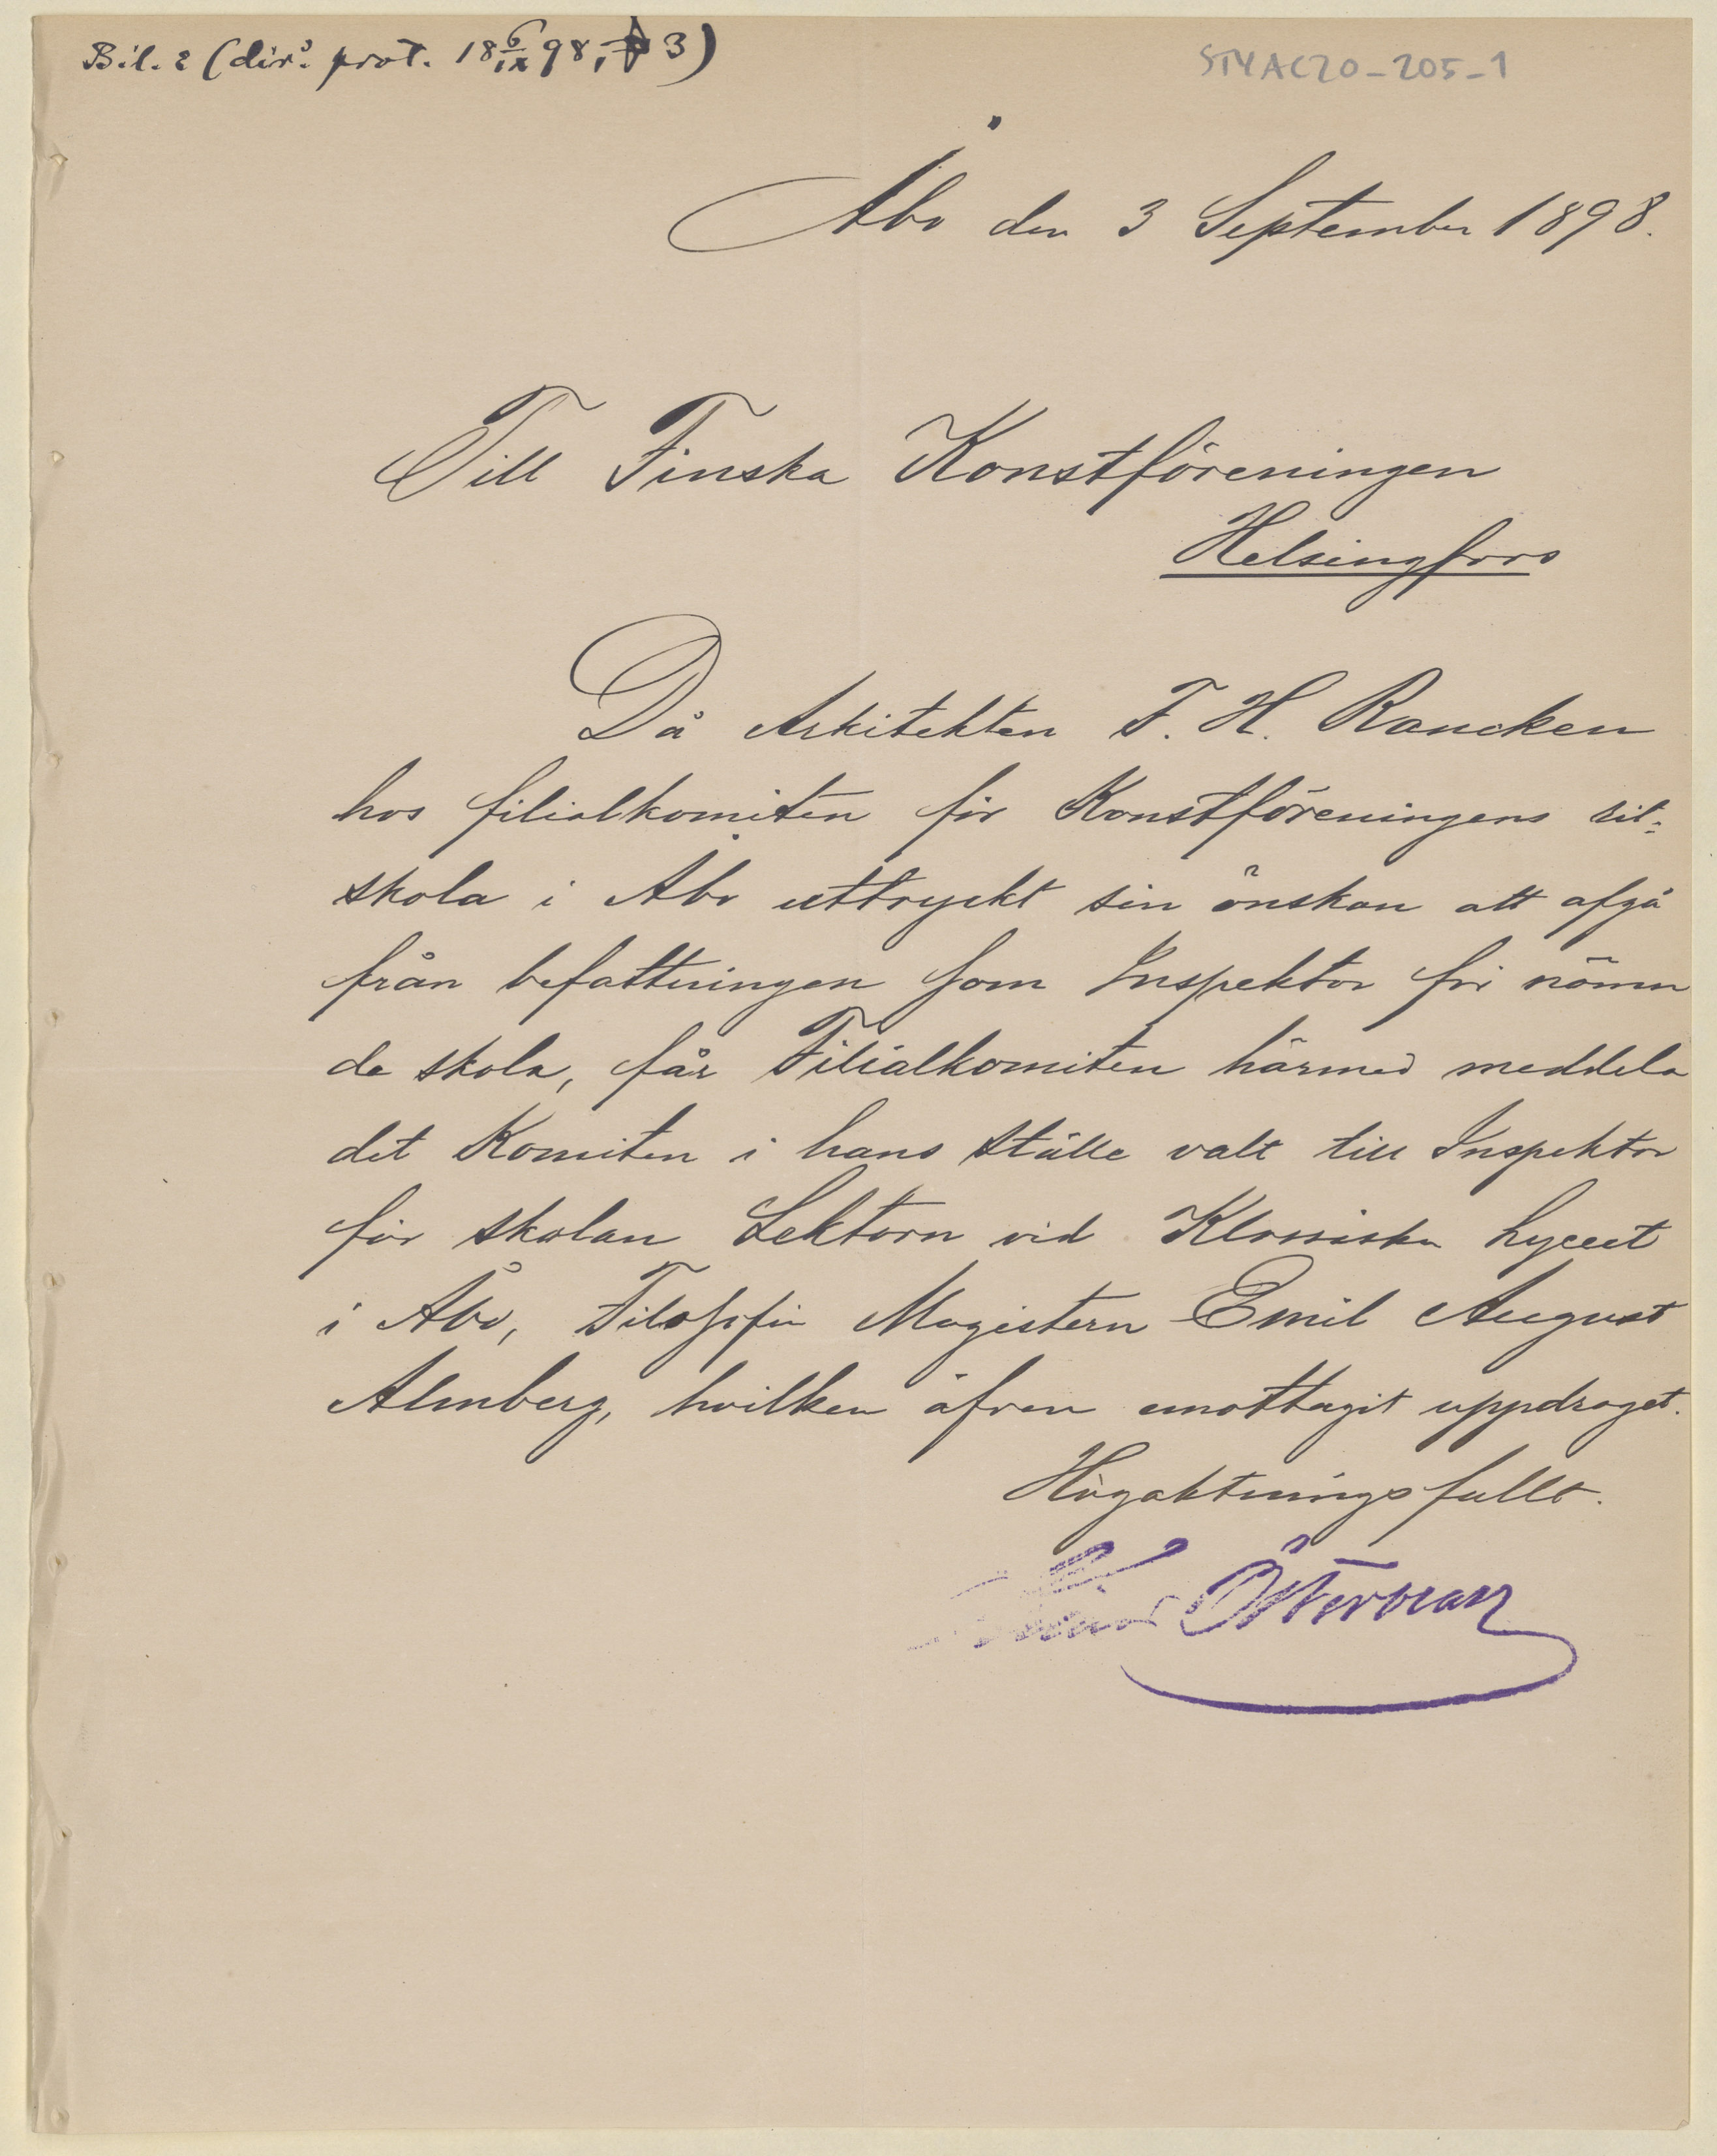 Bil. 2 (dir: prot. 18 6/IX 98, 3)
STYAC20-205-1
Åbo den 3 September 1898.
Till Finska Konstföreningen
Helsingfors
Då Arkitekten F. H. Rancken
hos filialkomitén för Konstföreningens rit-
skola i Åbo uttryckt sin önskan att afgå
från befattningen som Inspektor för nämn
de skola, får Filialkomitén härmed meddela
det Komitén i hans ställe valt till Inspektor
för skolan Lektorn vid Klassiska Lyceet
i Åbo, Filosofie Magistern Emil August
Almberg, hvilken äfven emottagit uppdraget.
Högaktningsfullt.
Österman